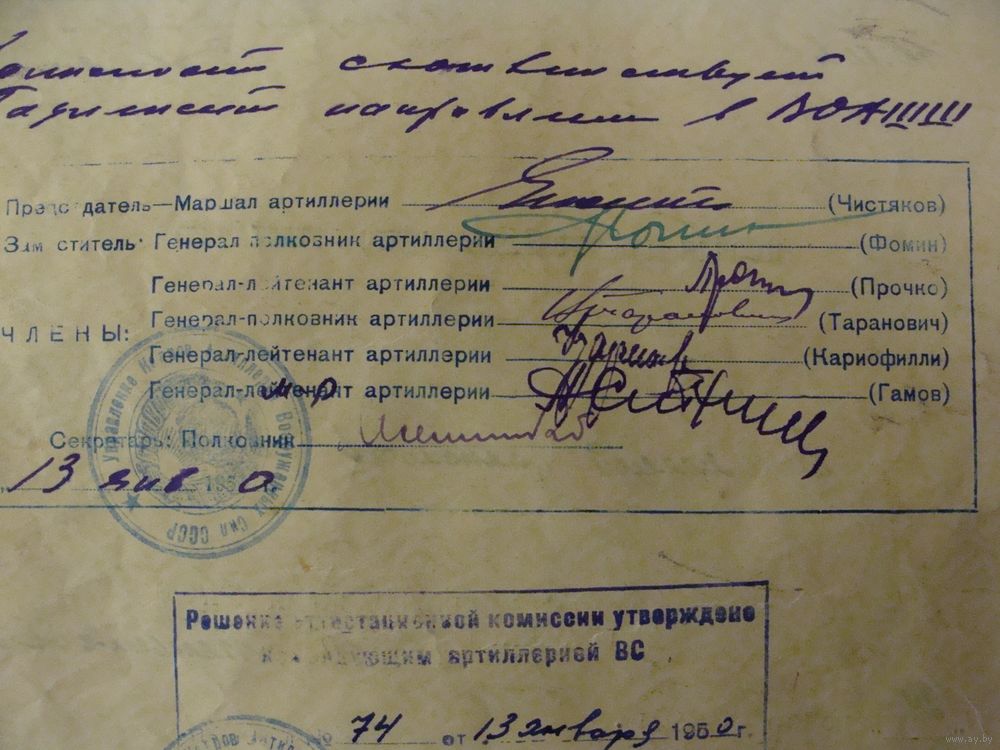 соответствует
направлять в ВОАШШ
Председатель—Маршал артиллерии (Чистяков)
Заместитель: Генерал полковник артиллерии (Фомин)
Генерал-лейтенант артиллерии (Прочко)
ЧЛЕНЫ: Генерал-полковник артиллерии (Таранович)
Генерал-лейтенант артиллерии (Кариофилли)
Генерал-лейтенант артиллерии (Гамов)
Секретарь: Полковник
13 янв 1950
Управление Вооруженных Сил СССР
Решение аттестационной комиссии утверждено
командующим артиллерией ВС
№ 74 от 13 января 1950 г.
www.ay.by